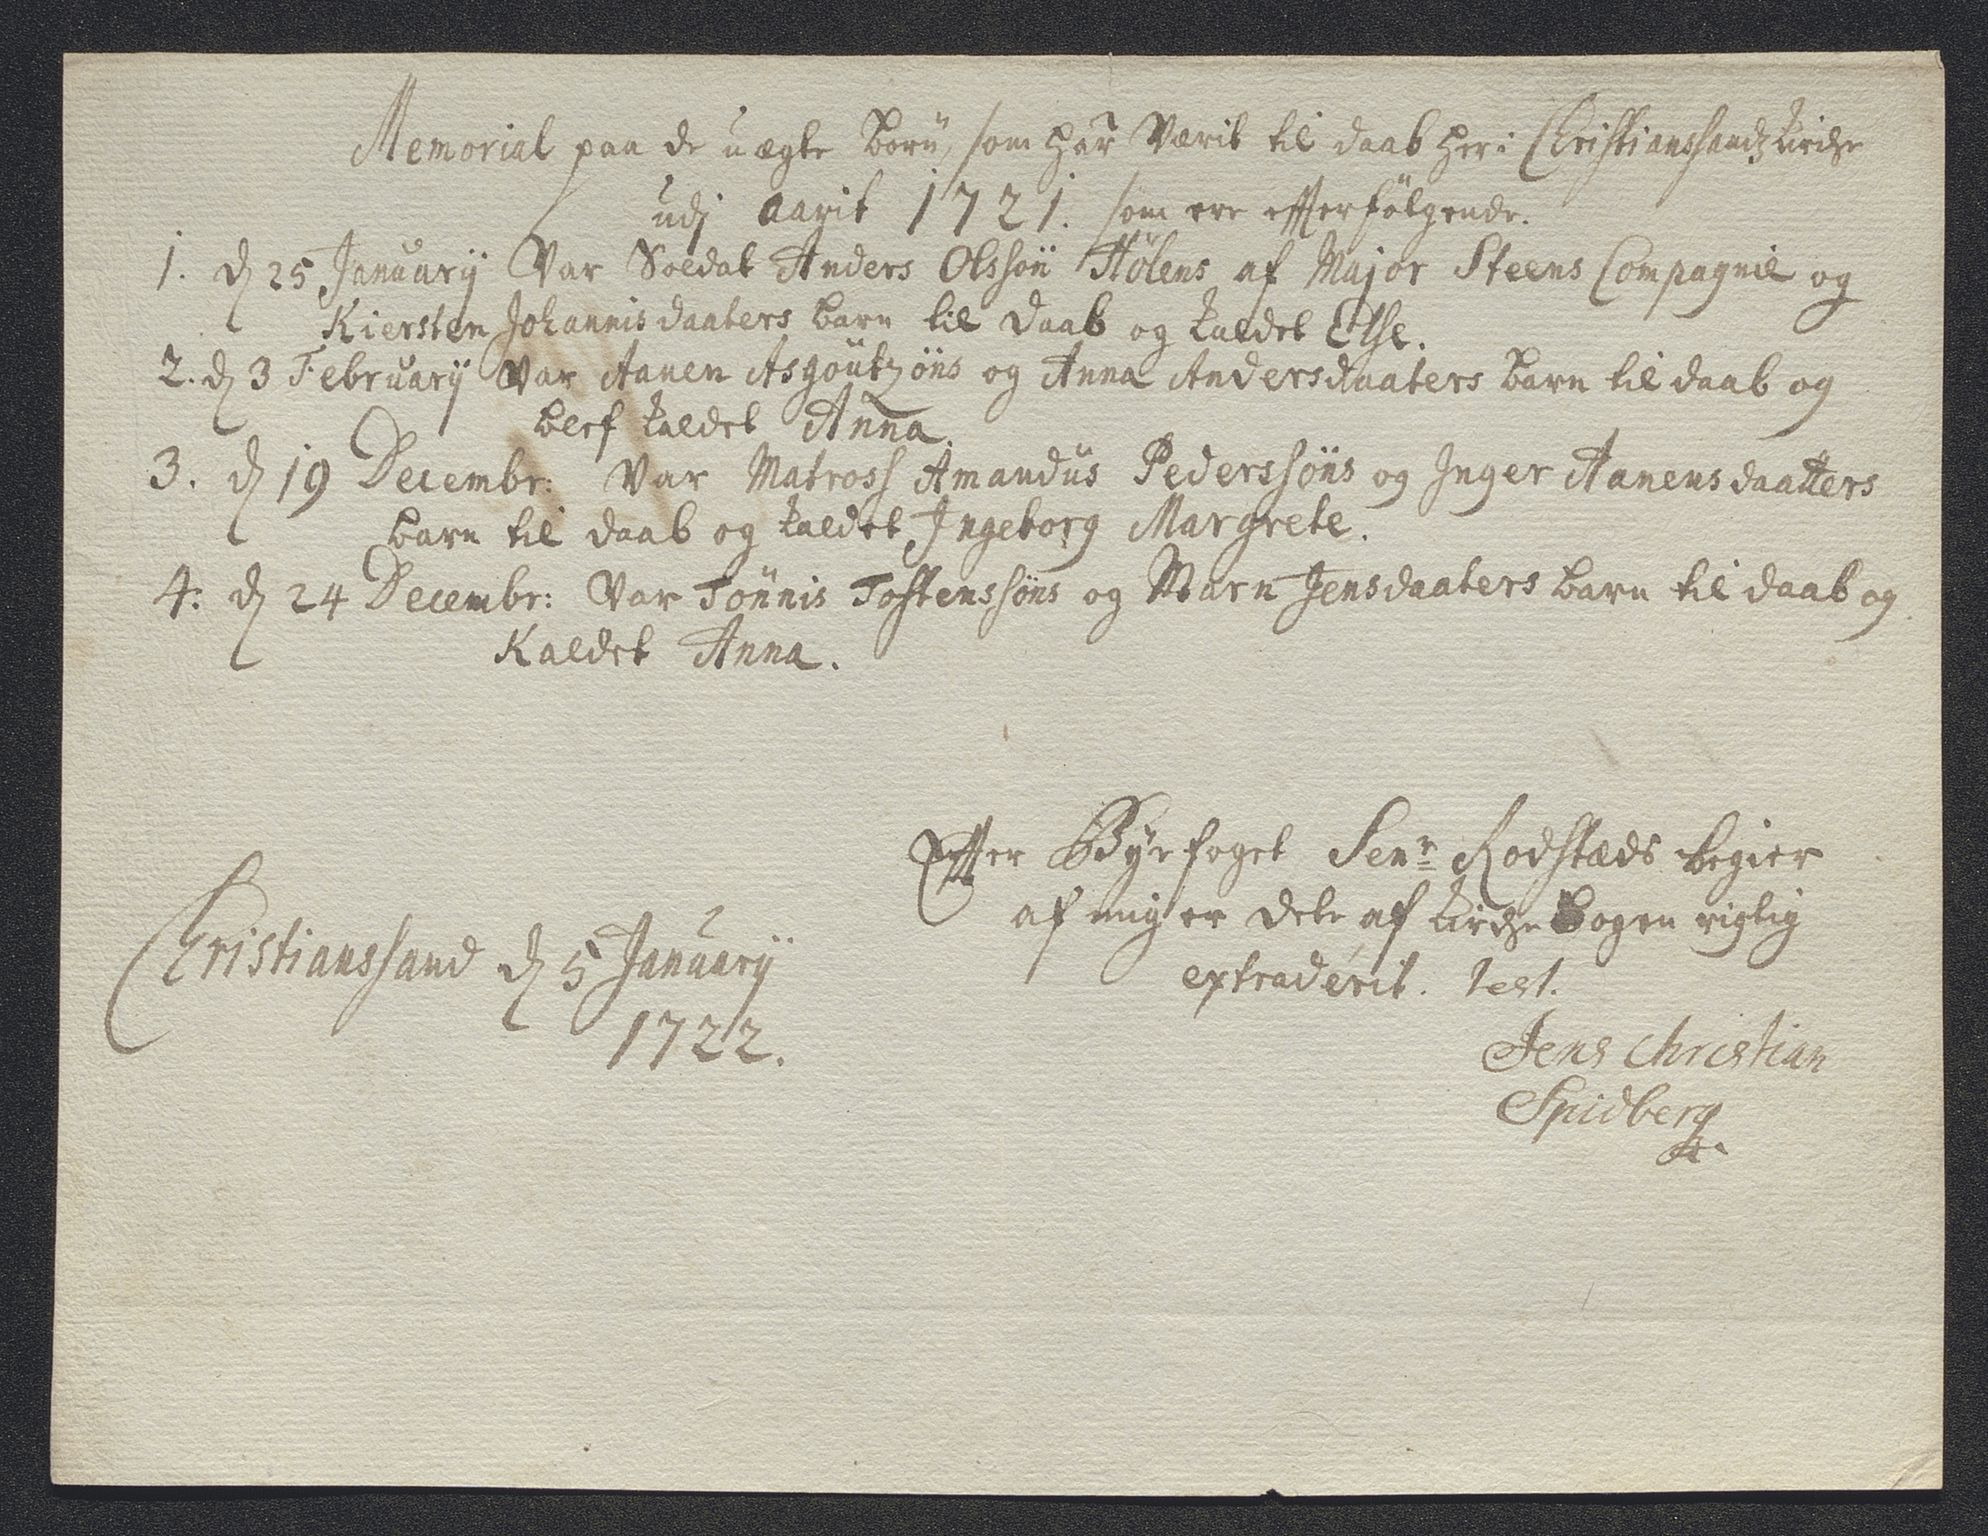 Memorial paa de uægte börn, som har Værit til daab her i Christianssandz Kirche
udj aarit 1721. som ere effterfölgende.
1. d 25 Januarÿ Var Soldat Anders Olssön Hölens af Major Steens Compagnie og
Kiersten Johannisdaaters barn til daab og kaldet Else.
2. d 3 Februarÿ Var Aanen Asgoutzöns og Anna Andersdaaters barn til daab og
blef kaldet Anna.
3. d 19 Decembr: Var Matross Amandus Pederssöns og Inger Aanensdaatters
barn til daab og kaldet Ingeborg Margrete.
4: d 24 Decembr: Var Tönnis Tostenssöns og Marn Jensdaaters barn til daab og
Kaldet Anna.
Effter Bÿefoget Senr Rodstæds begier
af mig er dete af Kirche bogen rigtig
extraderit. test.
Christianssand d 5 Januarÿ
1722.
Jens Christian
Spidberg